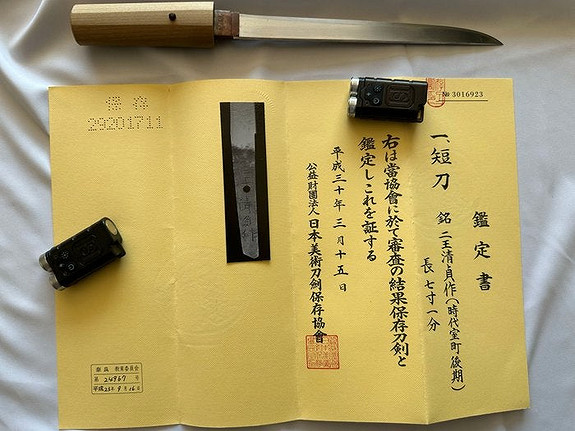 № 3016923
鑑定書
一、短刀 銘 二王清貞作(時代室町後期)
長 七寸一分
右は當協會に於て審査の結果保存刀剣と
鑑定しこれを証する
平成三十年三月十五日
公益財團法人 日本美術刀剣保存協會
保存
29201711
教育委員会
第 24967 号